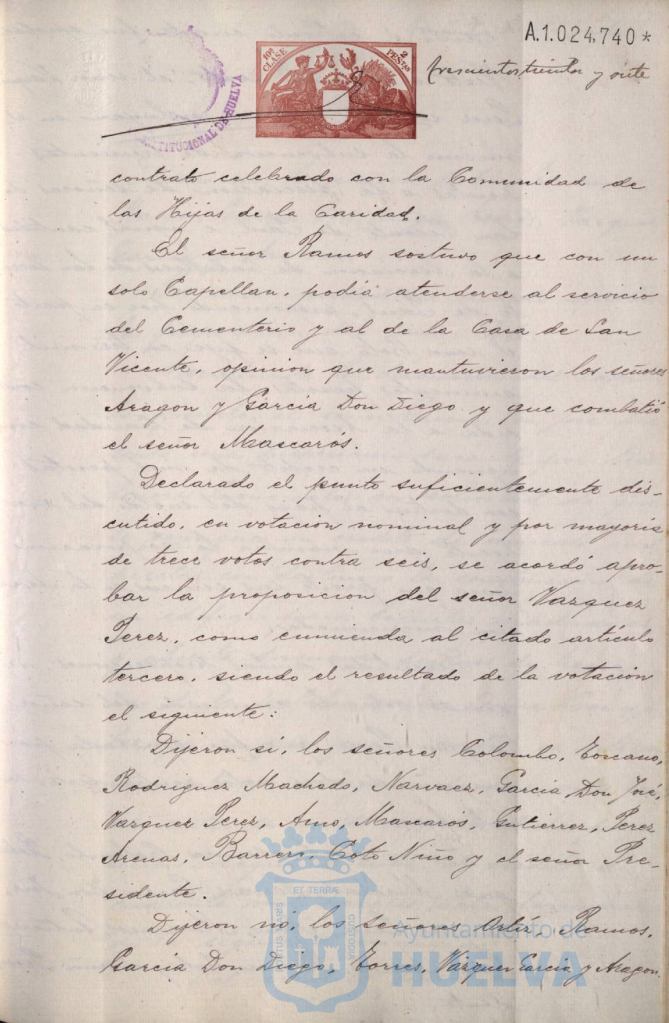 A.1.024,740*
10ª CLASE
2 PESTAS
trescientos treinta y siete
TITUCIONAL DE HUELVA
contrato celebrado con la Comunidad de
las Hijas de la Caridad.
El señor Ramos sostuvo que con un
solo Capellan, podiá atenderse al servicio
del Cementerio y al de la Casa de San
Vicente, opinion que mantuvieron los señores
Aragon y Garcia Don Diego y que combatió
el señor Mascarós.
Declarado el punto suficientemente dis-
cutido, en votacion nominal y por mayoria
de trece votos contra seis, se acordó apro-
bar la proposicion del señor Vazquez
Perez, como enmienda al citado artículo
tercero, siendo el resultado de la votacion
el siguiente:
Dijeron sí, los señores Colombo, Toscano,
Rodriguez Machado, Narvaez, Garcia Don José,
Vazquez Perez, Amo, Mascarós, Gutierrez, Perez
Arenas, Barrera, Coto Niño y el señor Pre-
sidente.
Dijeron no, los señores Ortiz, Ramos,
Garcia Don Diego, Torres, Vázquez Garcia y Aragon.
ET TERRÆ
Ayuntamiento de
HUELVA